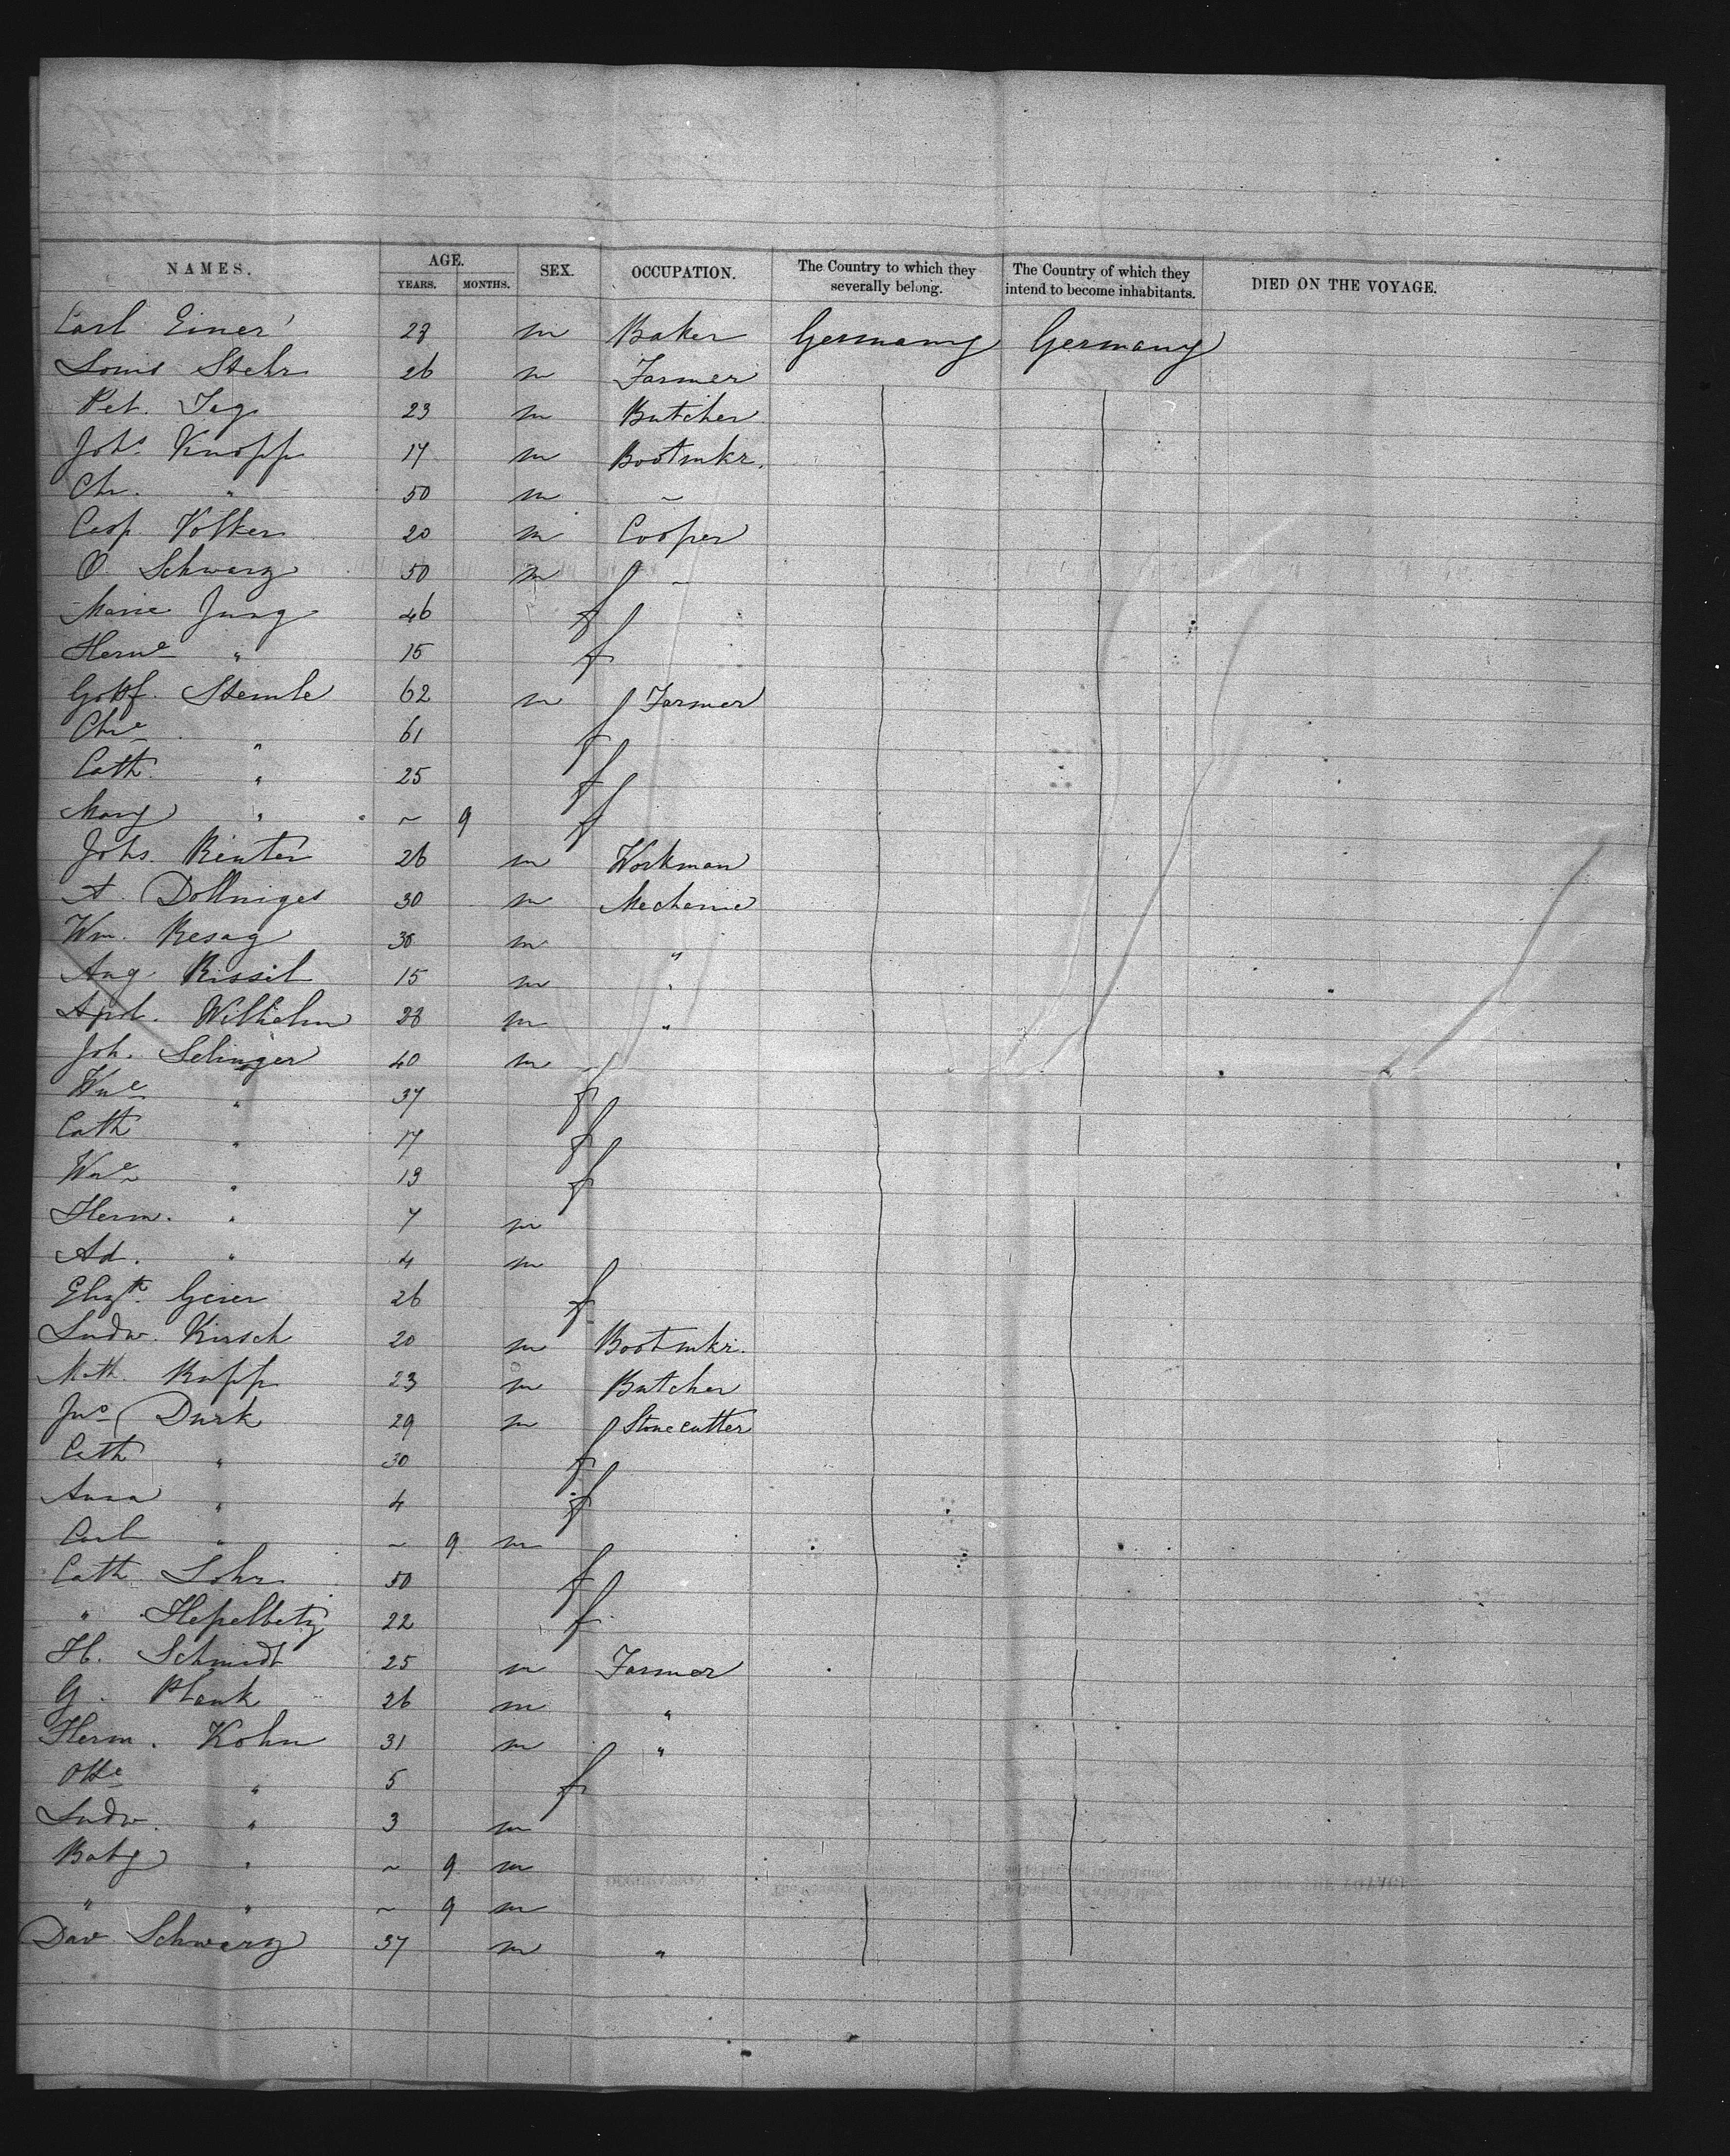 NAMES. AGE. SEX. OCCUPATION. The Country to which they severally belong. The Country of which they intend to become inhabitants. DIED ON THE VOYAGE.
YEARS. MONTHS.
Carl Einer 23 m Baker Germany Germany
Louis Stehr 26 m Farmer
Pet. 23 m Butcher
Johs. Knopp 17 m Bootmkr.
Chr. " 50 m ~
Casp. Volker 20 m Cooper
O. Schwarz 50 m ~
Marie Jung 46 f
Herme " 15 f
Gottf. Stemle 62 m Farmer
Chre " 61 f
Cath. " 25 f
Mary " ~ 9 f
Johs. Reuter 26 m Workman
A. Dollniges 30 m Mechanic
Wm. Resag 38 m "
Aug. Rissil 15 m "
Apol. Wilhelm 28 m "
Joh. Selinger 40 m ~
Wme " 37 f
Cath " 17 f
Wme " 13 f
Herm. " 7 m
Ad. " 4 m
Elizth. Geier 26 f
Ludw. Kirsch 20 m Bootmkr.
Math. Rupp 23 m Butcher
Jno. Durk 29 m Stonecutter
Cath " 30 f
Anna " 4 f
Carl " ~ 9 m
Cath Lohr 50 f
" 22 f
H. Schmidt 25 m Farmer
G. Plank 26 m "
Herm. Kohn 31 m "
Otte " 5 f
Ludw. " 3 m
Baby " ~ 9 m
" " ~ 9 m
Dav Schwarz 37 m "